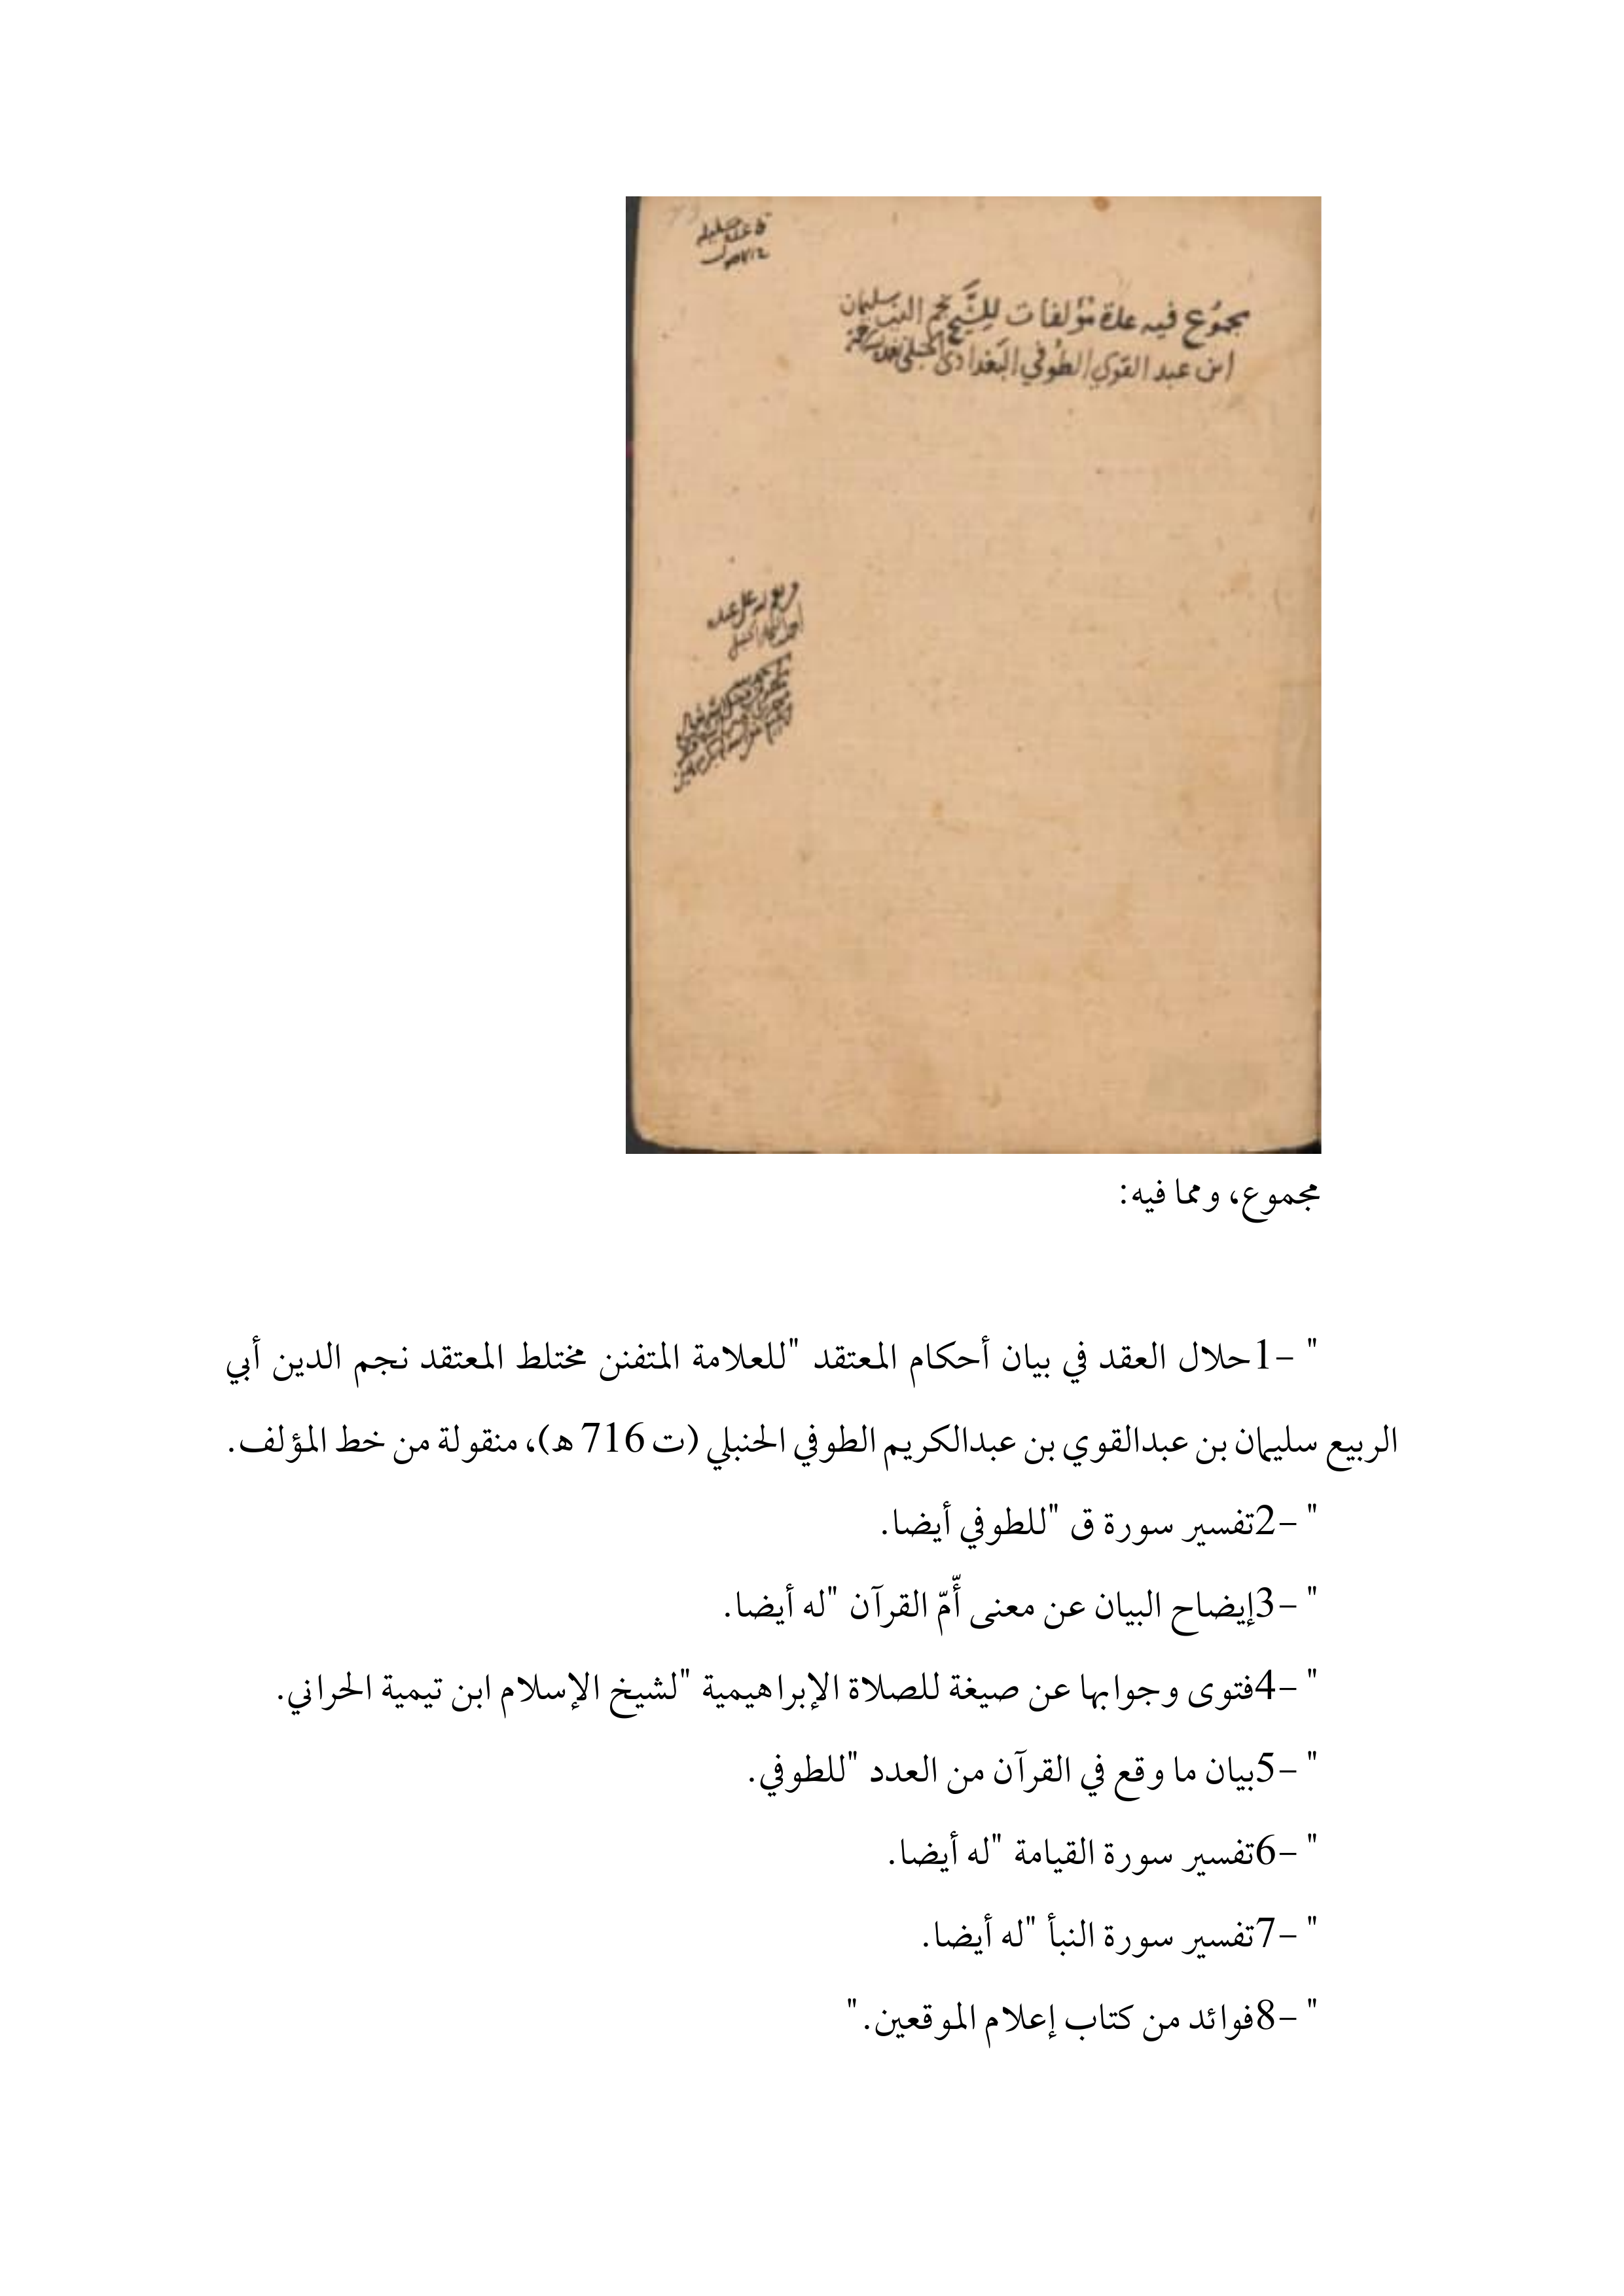 مجموع فيه عدة مؤلفات للشيخ نجم الدين سليمان
ابن عبد القوي الطوفي البغدادي الحنبلي
مجموع، ومما فيه:
" –1حلال العقد في بيان أحكام المعتقد "للعلامة المتفنن مختلط المعتقد نجم الدين أبي
الربيع سليمان بن عبدالقوي بن عبدالكريم الطوفي الحنبلي (ت 716 ه)، منقولة من خط المؤلف.
" –2تفسير سورة ق "للطوفي أيضا.
" –3إيضاح البيان عن معنى أُمّ القرآن "له أيضا.
" –4فتوى وجوابها عن صيغة للصلاة الإبراهيمية "لشيخ الإسلام ابن تيمية الحراني.
" –5بيان ما وقع في القرآن من العدد "للطوفي.
" –6تفسير سورة القيامة "له أيضا.
" –7تفسير سورة النبأ "له أيضا.
" –8فوائد من كتاب إعلام الموقعين."